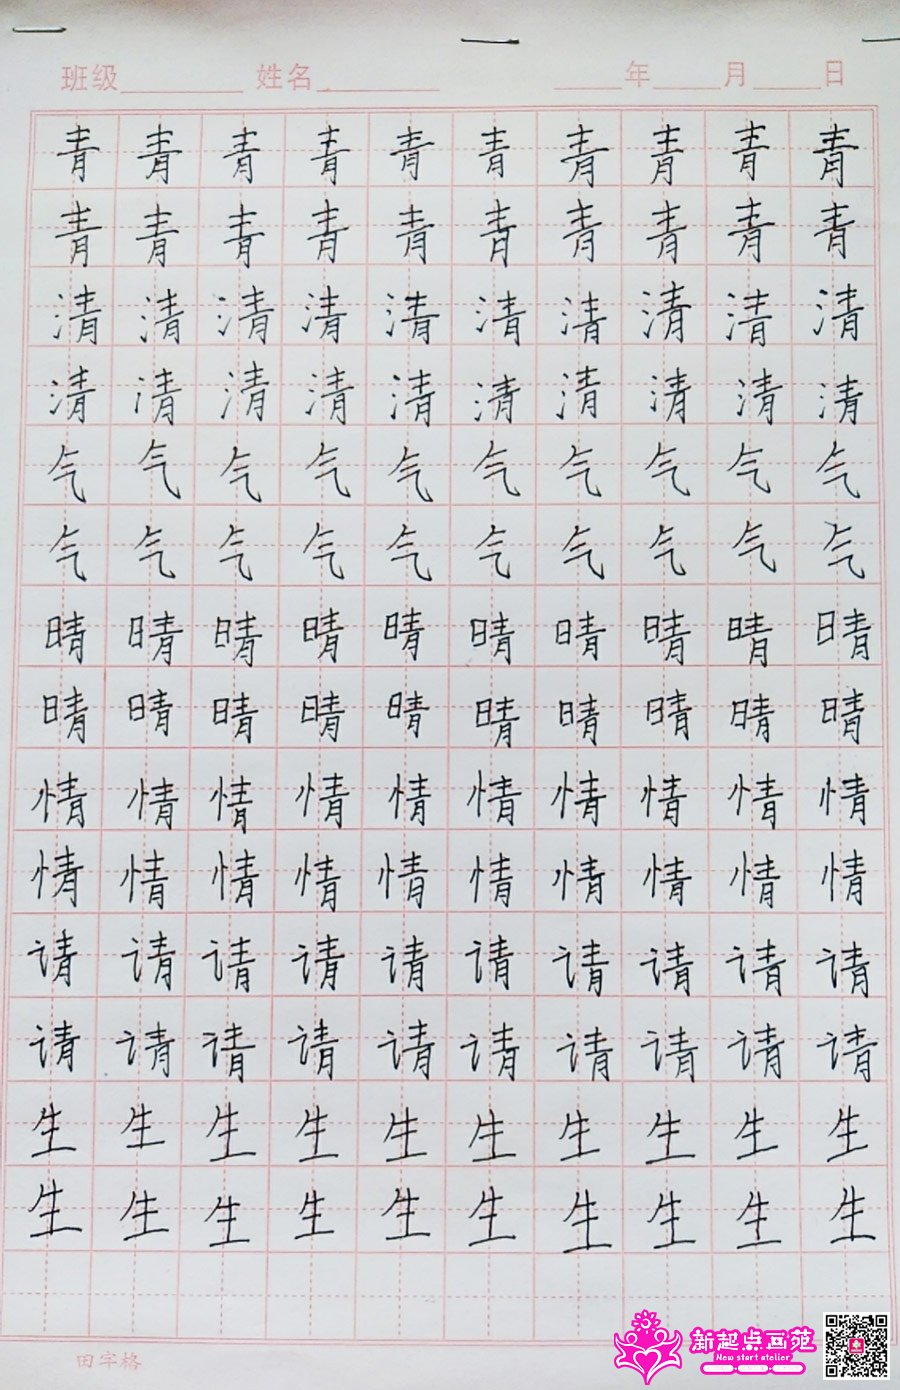 班级 姓名 年 月 日
青 青 青 青 青 青 青 青 青 青
青 青 青 青 青 青 青 青 青 青
清 清 清 清 清 清 清 清 清 清
清 清 清 清 清 清 清 清 清 清
气 气 气 气 气 气 气 气 气 气
气 气 气 气 气 气 气 气 气 气
晴 晴 晴 晴 晴 晴 晴 晴 晴 晴
晴 晴 晴 晴 晴 晴 晴 晴 晴 晴
情 情 情 情 情 情 情 情 情 情
情 情 情 情 情 情 情 情 情 情
请 请 请 请 请 请 请 请 请 请
请 请 请 请 请 请 请 请 请 请
生 生 生 生 生 生 生 生 生 生
生 生 生 生 生 生 生 生 生 生
新起点画苑
New start atelier
田字格